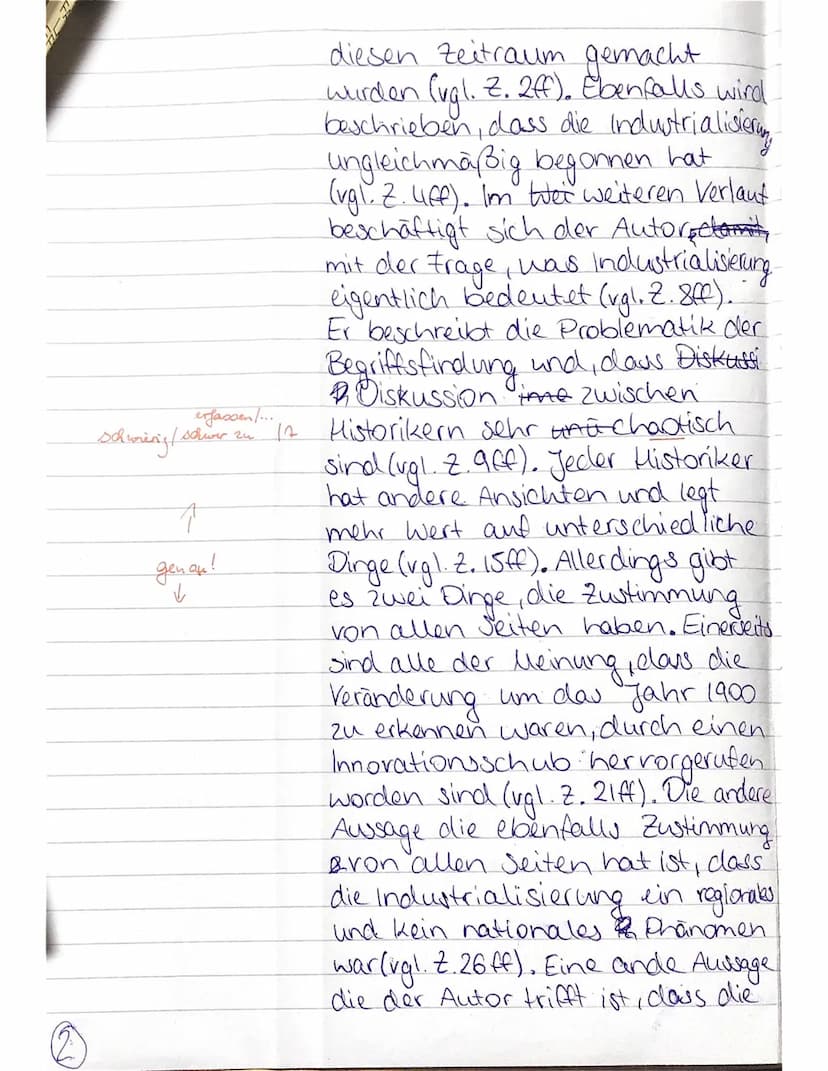 diesen Zeitraum gemacht
wurden (vgl. Z. 2ff). Ebenfalls wird
beschrieben, dass die Industrialisierung
ungleichmäßig begonnen hat
(vgl. Z. 4ff). Im wei weiteren Verlauf
beschäftigt sich der Autor, damit,
mit der Frage, was Industrialisierung
eigentlich bedeutet (vgl. Z. 8ff).
Er beschreibt die Problematik der
Begriffsfindung und, dass Diskussi
Diskussion zwischen
erfassen/...
schwierig/schwer zu
Historikern sehr und chaotisch
sind (vgl. Z. 9ff). Jeder Historiker
hat andere Ansichten und legt
mehr Wert auf unterschiedliche
genau!
Dinge (vgl. Z. 15ff). Allerdings gibt
es zwei Dinge, die Zustimmung
von allen Seiten haben. Einerseits
sind alle der Meinung, dass die
Veränderung um das Jahr 1900
zu erkennen waren, durch einen
Innovationsschub hervorgerufen
worden sind (vgl. Z. 21ff). Die andere
Aussage die ebenfalls Zustimmung
von allen Seiten hat ist, dass
die Industrialisierung ein regionales
und kein nationales Phänomen
war (vgl. Z. 26ff). Eine ande Aussage
die der Autor trifft ist, dass die
2